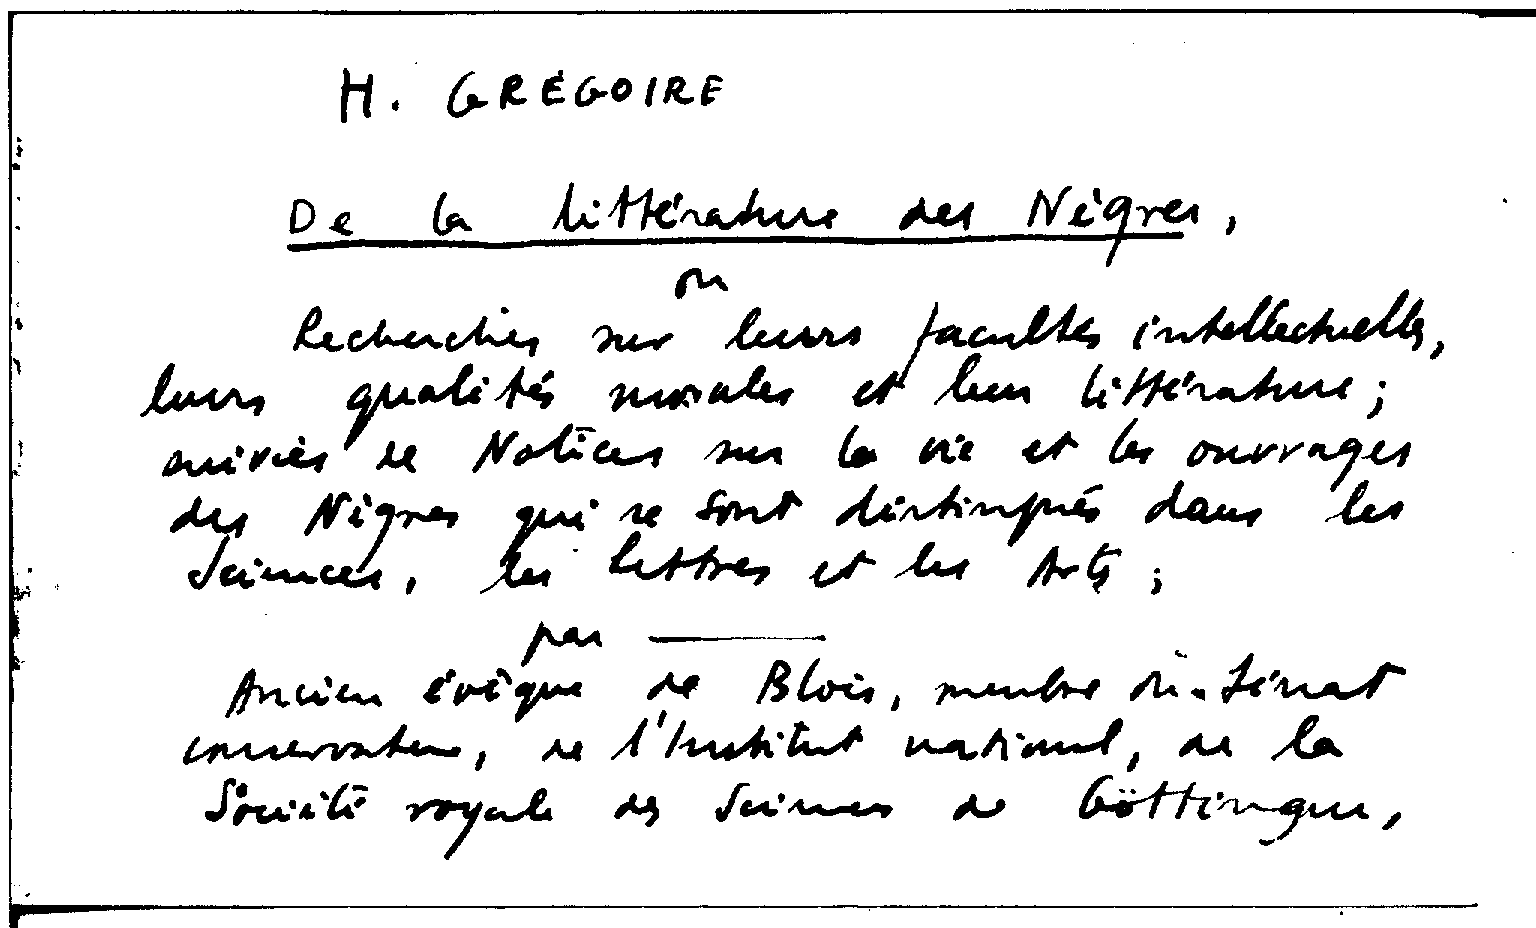 H. GRÉGOIRE
De la littérature des Nègres,
ou
Recherches sur leurs facultés intellectuelles,
leurs qualités morales et leur littérature;
suivies de Notices sur la vie et les ouvrages
des Nègres qui se sont distingués dans les
Sciences, les lettres et les Arts;
par ———
Ancien évêque de Blois, membre du Sénat
conservateur, de l'Institut national, de la
Société royale des Sciences de Göttingue,